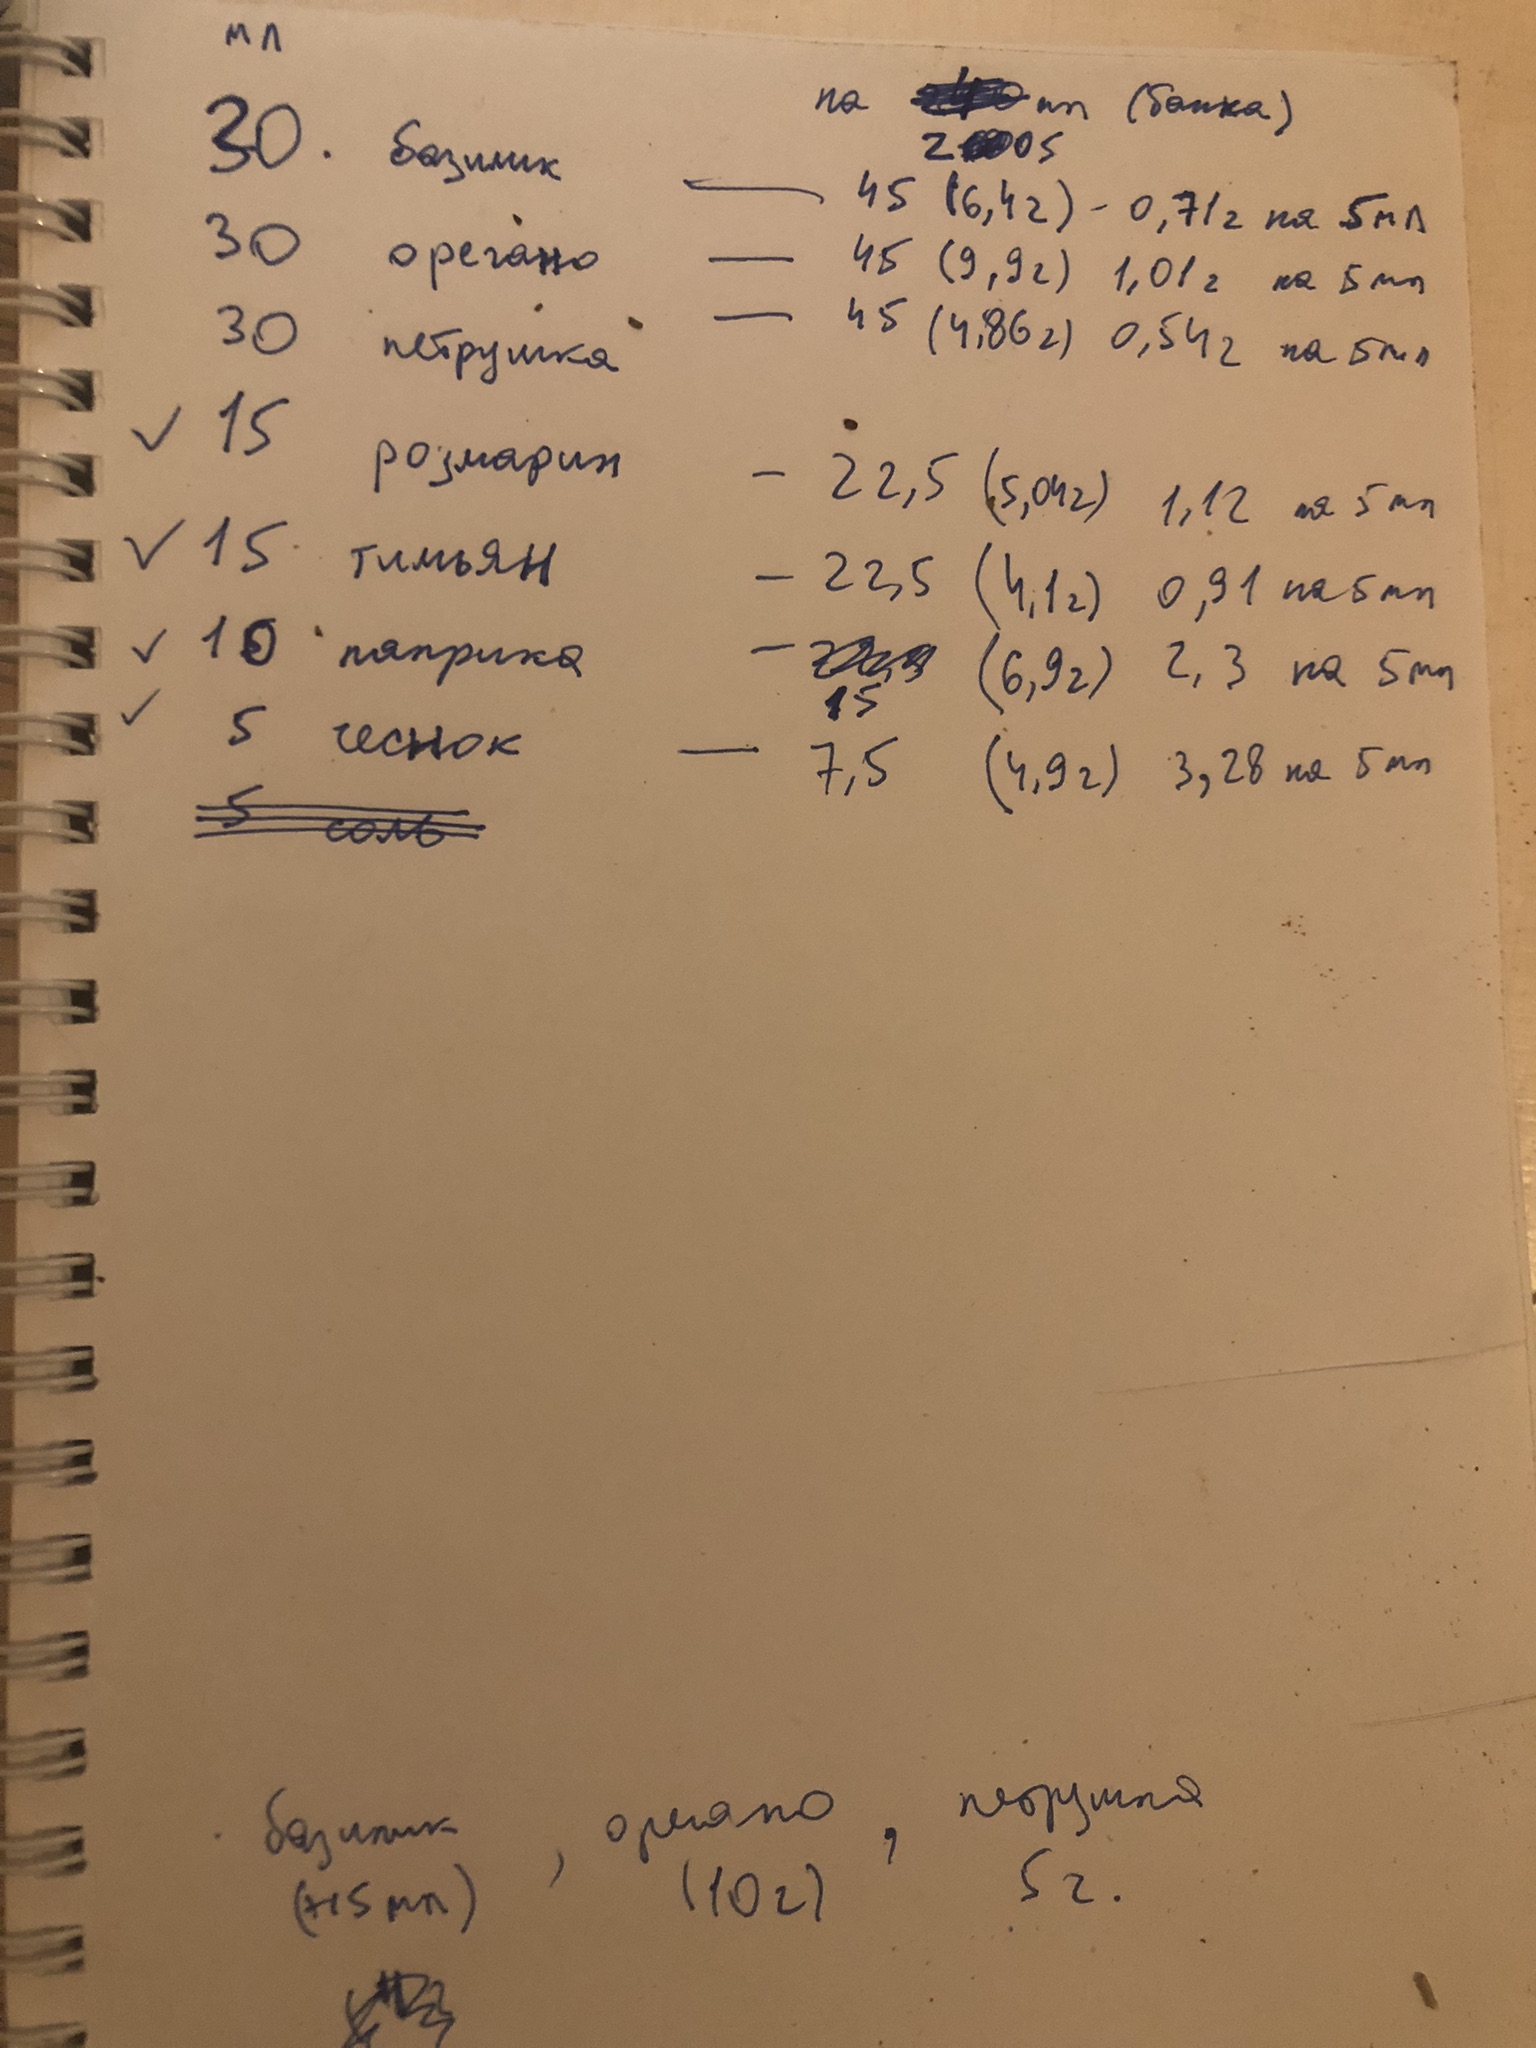 мл
на мл (банка)
205
30. базилик — 45 (6,4г) - 0,71г на 5мл
30 орегано — 45 (9,9г) 1,01г на 5мл
30 петрушка — 45 (4,86г) 0,54г на 5мл
✓ 15 розмарин - 22,5 (5,04г) 1,12 на 5мл
✓ 15 тимьян - 22,5 (4,1г) 0,91 на 5мл
✓ 10 паприка - (6,9г) 2,3 на 5мл
15
✓ 5 чеснок — 7,5 (4,9г) 3,28 на 5мл
5 соль
базилик, орегано, петрушка
(+15мл) (10г) 5г.